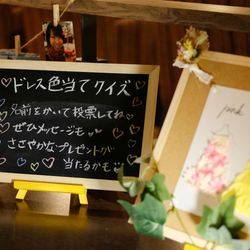 ♡ドレス色当てクイズ♡
♡名前をかいて投票してね
♡ぜひメッセージも
♡ささやかなプレゼントが
当たるかも♡
pink